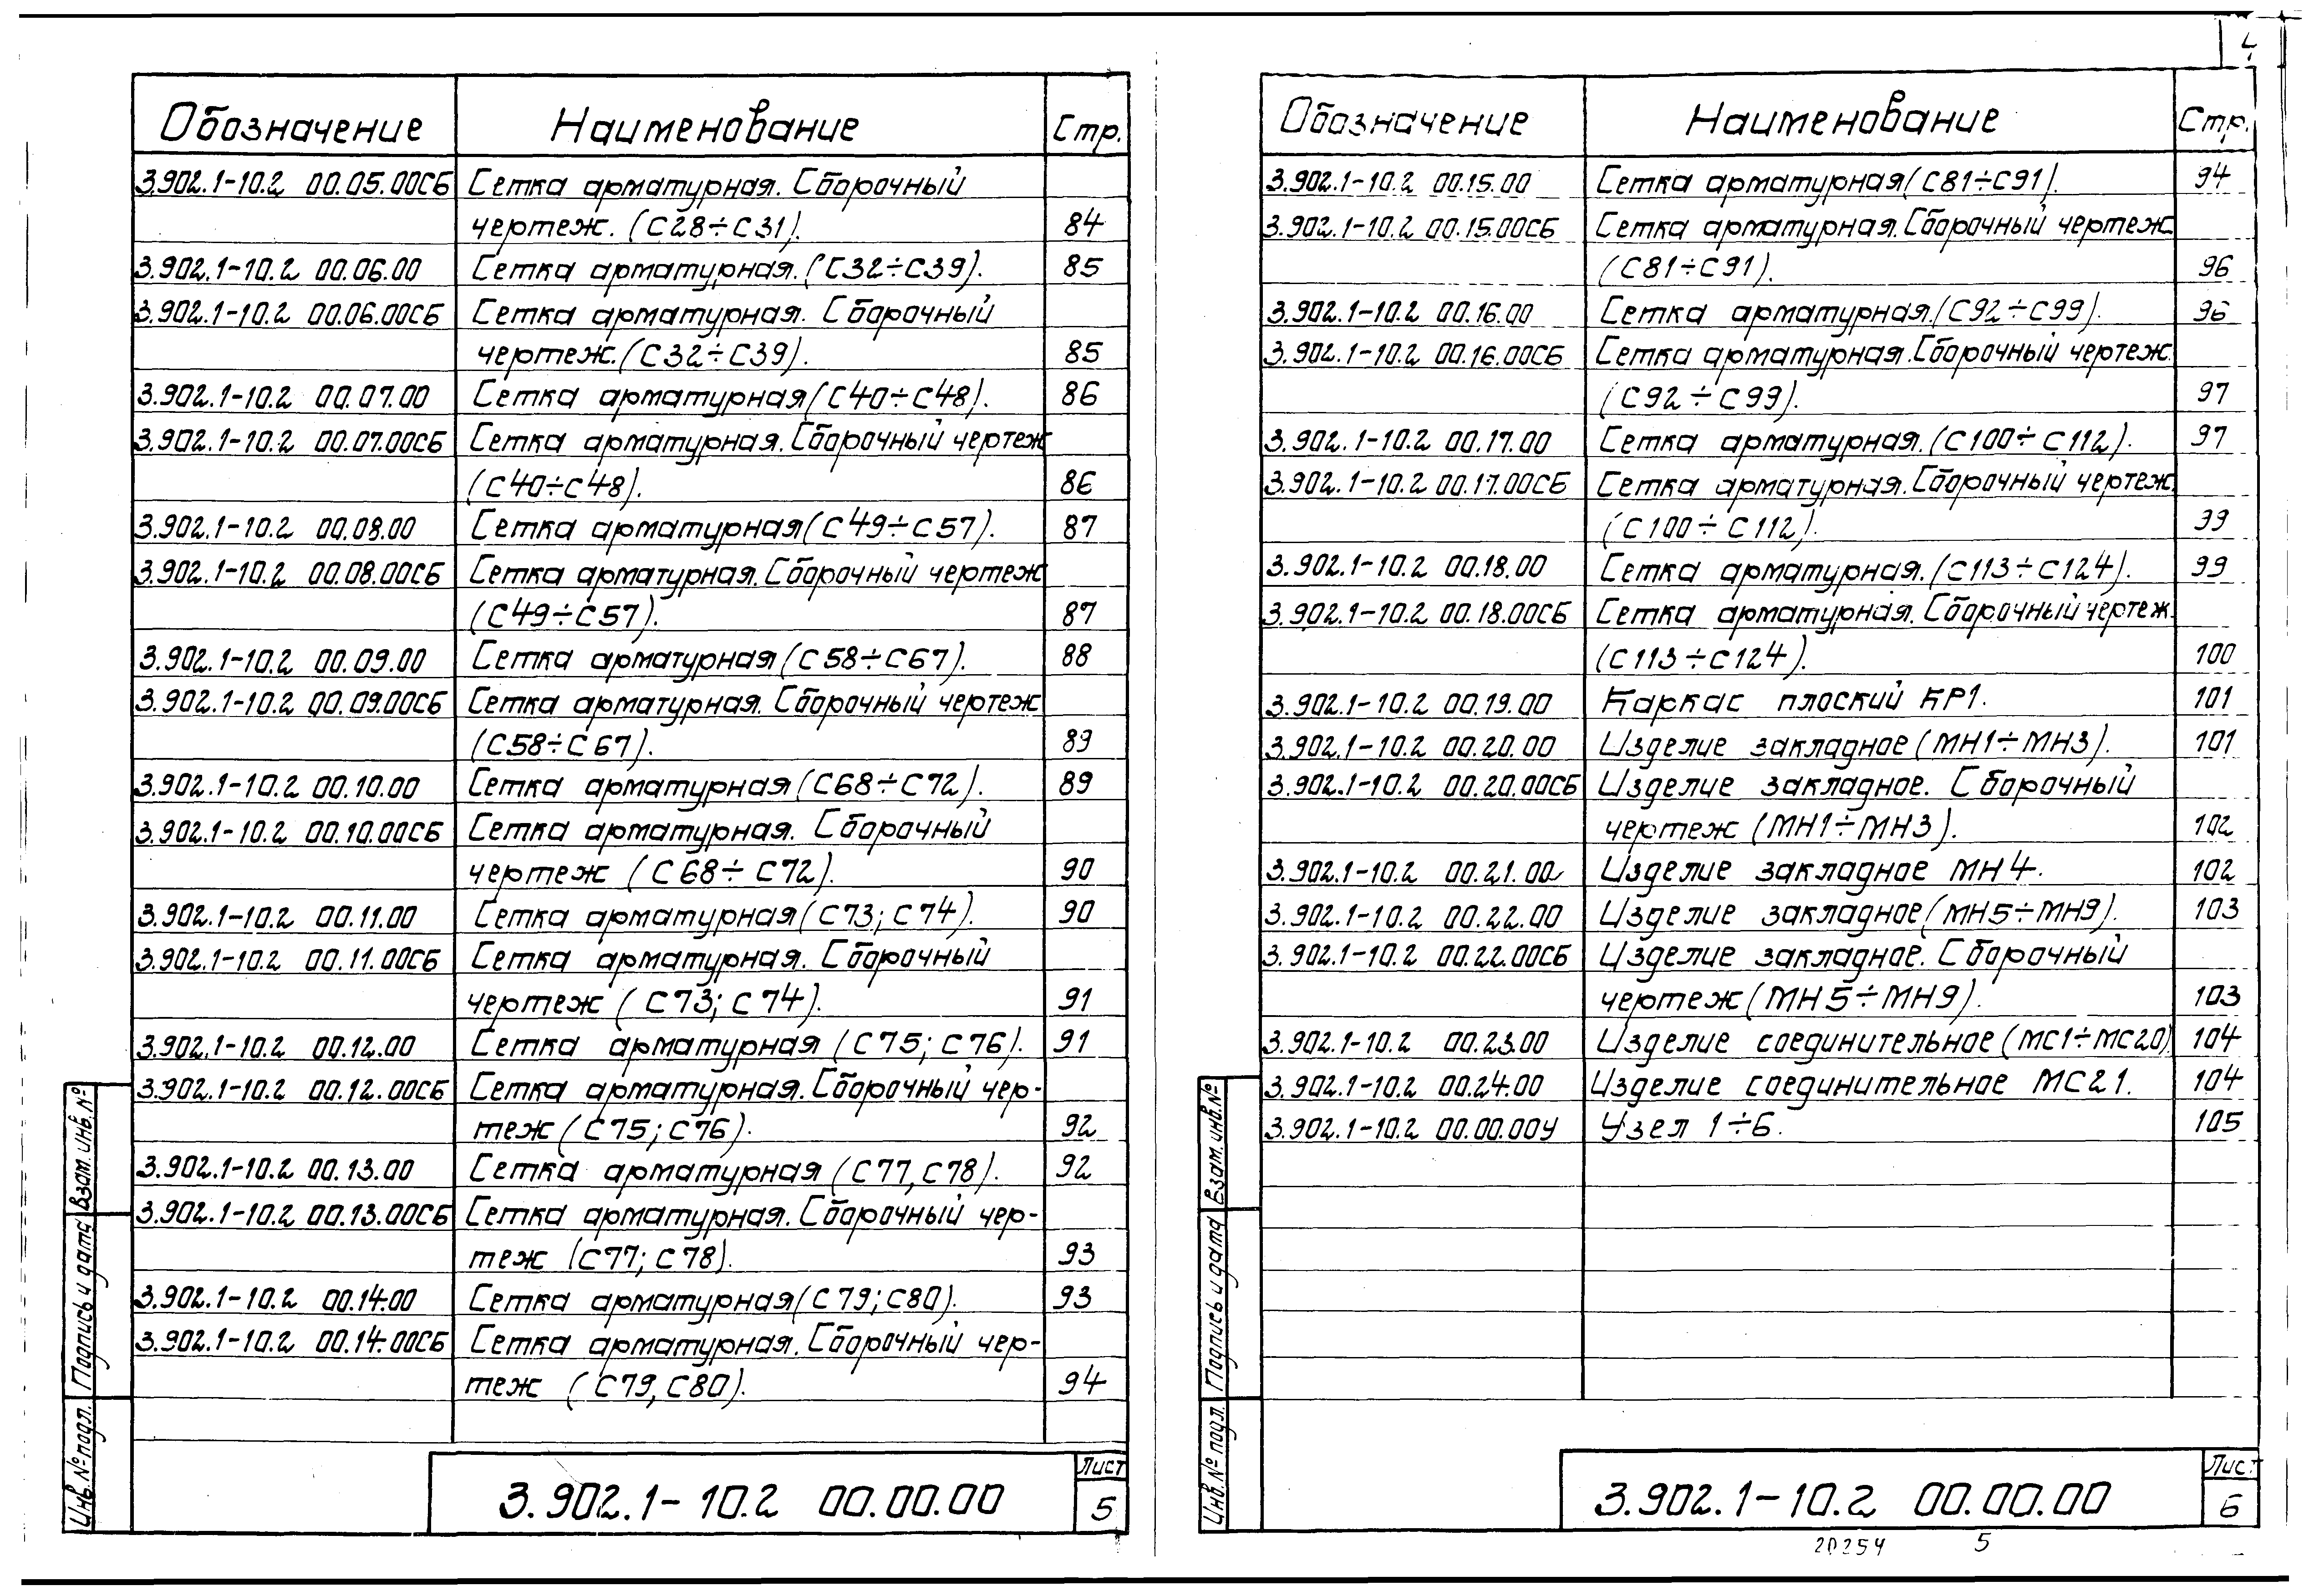 4
Обозначение Наименование Стр.
3.902.1-10.2 00.05.00СБ Сетка арматурная. Сборочный
чертеж. (С28÷С31). 84
3.902.1-10.2 00.06.00 Сетка арматурная. (С32÷С39). 85
3.902.1-10.2 00.06.00СБ Сетка арматурная. Сборочный
чертеж. (С32÷С39). 85
3.902.1-10.2 00.07.00 Сетка арматурная (С40÷С48). 86
3.902.1-10.2 00.07.00СБ Сетка арматурная. Сборочный чертеж
(С40÷С48). 86
3.902.1-10.2 00.08.00 Сетка арматурная (С49÷С57). 87
3.902.1-10.2 00.08.00СБ Сетка арматурная. Сборочный чертеж
(С49÷С57). 87
3.902.1-10.2 00.09.00 Сетка арматурная (С58÷С67). 88
3.902.1-10.2 00.09.00СБ Сетка арматурная. Сборочный чертеж
(С58÷С67). 89
3.902.1-10.2 00.10.00 Сетка арматурная (С68÷С72). 89
3.902.1-10.2 00.10.00СБ Сетка арматурная. Сборочный
чертеж (С68÷С72). 90
3.902.1-10.2 00.11.00 Сетка арматурная (С73; С74). 90
3.902.1-10.2 00.11.00СБ Сетка арматурная. Сборочный
чертеж (С73; С74). 91
3.902.1-10.2 00.12.00 Сетка арматурная (С75; С76). 91
3.902.1-10.2 00.12.00СБ Сетка арматурная. Сборочный чер-
теж (С75; С76). 92
3.902.1-10.2 00.13.00 Сетка арматурная (С77, С78). 92
3.902.1-10.2 00.13.00СБ Сетка арматурная. Сборочный чер-
теж (С77; С78). 93
3.902.1-10.2 00.14.00 Сетка арматурная (С79; С80). 93
3.902.1-10.2 00.14.00СБ Сетка арматурная. Сборочный чер-
теж (С79, С80). 94
Взам. инв. №
Подпись и дата
Инв. № подл.
3.902.1-10.2 00.00.00
Лист
5
Обозначение Наименование Стр.
3.902.1-10.2 00.15.00 Сетка арматурная (С81÷С91). 94
3.902.1-10.2 00.15.00СБ Сетка арматурная. Сборочный чертеж
(С81÷С91). 96
3.902.1-10.2 00.16.00 Сетка арматурная. (С92÷С99). 96
3.902.1-10.2 00.16.00СБ Сетка арматурная. Сборочный чертеж.
(С92÷С99). 97
3.902.1-10.2 00.17.00 Сетка арматурная. (С100÷С112). 97
3.902.1-10.2 00.17.00СБ Сетка арматурная. Сборочный чертеж.
(С100÷С112). 99
3.902.1-10.2 00.18.00 Сетка арматурная. (С113÷С124). 99
3.902.1-10.2 00.18.00СБ Сетка арматурная. Сборочный чертеж.
(С113÷С124). 100
3.902.1-10.2 00.19.00 Каркас плоский КР1. 101
3.902.1-10.2 00.20.00 Изделие закладное (МН1÷МН3). 101
3.902.1-10.2 00.20.00СБ Изделие закладное. Сборочный
чертеж (МН1÷МН3). 102
3.902.1-10.2 00.21.00 Изделие закладное МН4. 102
3.902.1-10.2 00.22.00 Изделие закладное (МН5÷МН9). 103
3.902.1-10.2 00.22.00СБ Изделие закладное. Сборочный
чертеж (МН5÷МН9). 103
3.902.1-10.2 00.23.00 Изделие соединительное (МС1÷МС20) 104
3.902.1-10.2 00.24.00 Изделие соединительное МС21. 104
3.902.1-10.2 00.00.00У Узел 1÷6. 105
Взам. инв. №
Подпись и дата
Инв. № подл.
3.902.1-10.2 00.00.00
Лист
6
20254 5